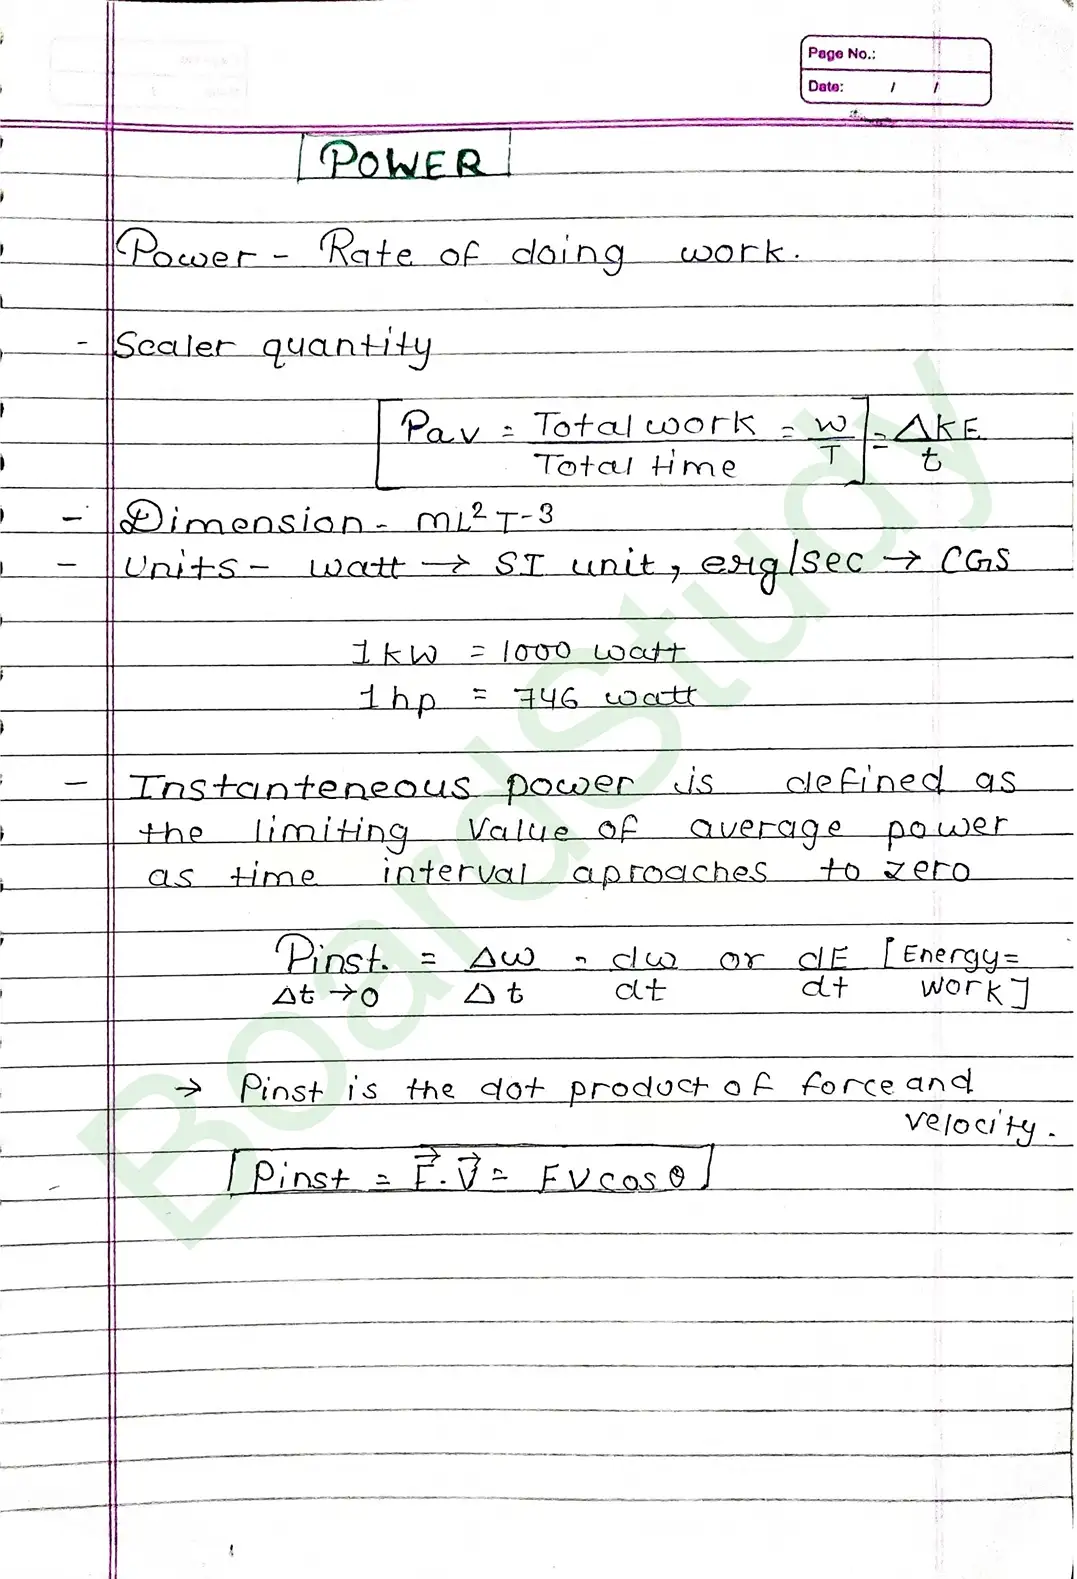 Page No.:
Date: / /
POWER
Power - Rate of doing work.
- Scaler quantity
[Pav = Total work / Total time = W/T] = ΔKE/t
- Dimension - ML² T-3
- Units - watt → SI unit, erg/sec → CGS
1 kW = 1000 watt
1 hp = 746 watt
- Instanteneous power is defined as
the limiting value of average power
as time interval aproaches to zero
Pinst. = Δw = dw or dE [Energy=
Δt →0 Δt dt dt work]
→ Pinst is the dot product of force and
velocity.
[Pinst = F⃗.V⃗ = FVcosθ]
BoardStudy